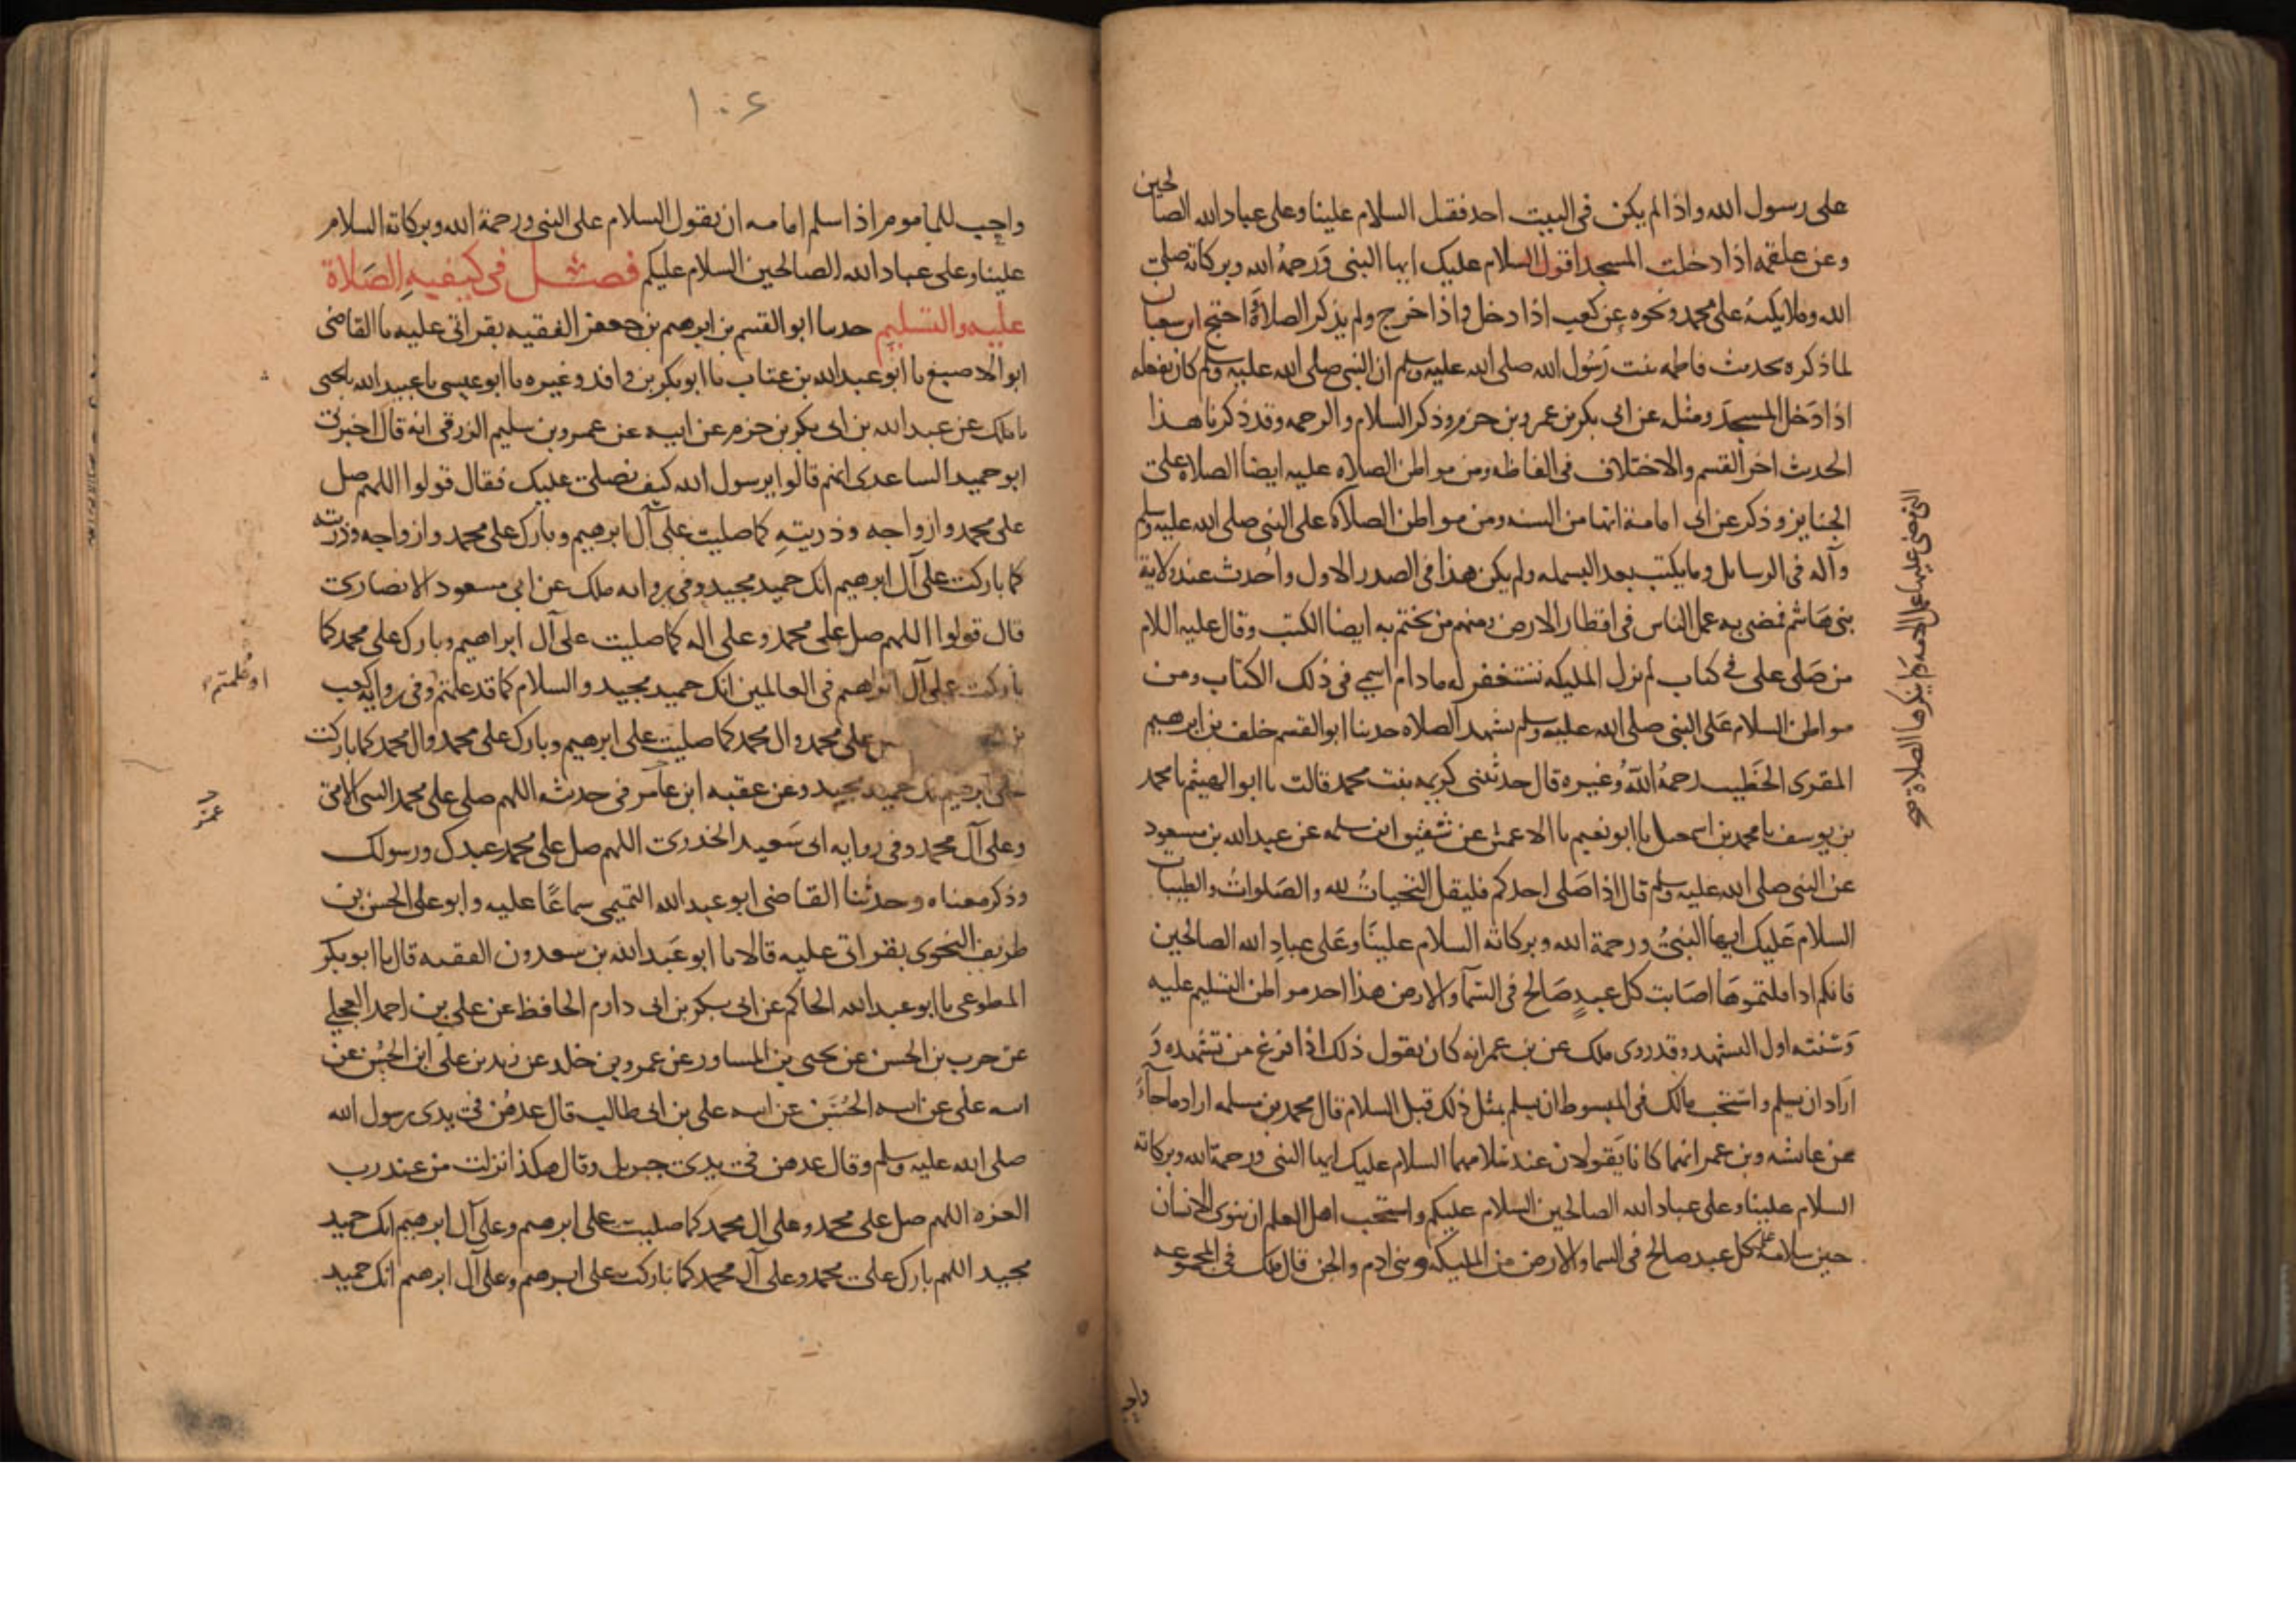 على رسول الله واذا لم يكن فى البيت احد فقل السلام علينا وعلى عباد الله الصالحين
وعن علقمه اذا دخلت المسجد اقول السلام عليك ايها النبى وَرحمةُ الله وبركاته صلى
الله وملايكتهُ على محمد ونحوه عن كعب اذا دخل واذا خرج ولم يذكر الصلاةَ احتج ابن سعبان
لما ذكره بحديث فاطمه بنت رَسُول الله صلى الله عليه وسلم ان النبى صلى الله عليه وسلم كان يفعله
اذا دَخل المسجدَ ومثله عن ابى بكر بن عمرو بن حزم وذكر السلام والرحمه وقد ذكرنا هذا
الحديث اخر القسم والاختلاف فى الفاظه ومن مواطن الصلاه عليه ايضا الصلاه على
الجنايز وذكر عن ابى امامة انها من السنه ومن مواطن الصلاة على النبى صلى الله عليه وسلم
وآله فى الرسايل وما يكتب بعد البسمله ولم يكن هذا فى الصدر الاول واُحدث عند ولاية
بنى هَاشم فمضى به عمل الناس فى اقطار الارض ومنهم من يختم به ايضا الكتب وقال عليه اللام
من صَلى على فى كتاب لم تزل المليكه تستغفر له ما دام اسمى فى ذلك الكتاب ومن
مواطن السلام عَلى النبى صلى الله عليه وسلم تشهد الصلاه حدثنا ابو القسم خلف بن ابرهيم
المقرى الخَطيب رحمهُ اللّهُ وغيره قال حدثتنى كريمه بنت محمد قالت نا ابو الهيثم نا محمد
بن يوسف نا محمد بن اسمعيل نا ابو نعيم نا الاعمش عن شقيق ابن سلمه عن عبد الله بن مسعود
عن النبى صلى الله عليه وسلم قال اذا صَلى احدكم فليقل التحياتُ لله والصَلواتُ والطيبات
السلام عَليك ايها النبىُ ورحمة الله وبركاته السلام علينَا وعَلى عبادِ الله الصالحين
فانكم اذا قلتموهَا اصَابت كل عبدٍ صَالح فى السَمآ والارض هذا احد مواطن التسليم عليه
وَسُنته اول التشهد وقد روى ملك عن بن عمر انه كان يقول ذلك اذا فرغ من تشهده وَ
ارَاد ان يسلم واستحَب مالك فى المبسوط ان يسلم بمثل ذلك قبل السلام قال محمد بن مسلمه اراد ما جآءَ
عن عايشه وبن عمر انهما كانا يَقولان عند سلامهما السلام عليك ايها النبى ورحمة الله وبركاته
السلام علينا وعلى عباد الله الصالحين السلام عليكم واستحب اهل العلم ان ينوى الانسان
حين سلامه على كل عبد صالح فى السما والارض من المليكه وبنى ادم والجن قال ملك فى المجموعه
واجب
واجب للماموم اذا سلم امامه ان يقول السلام على النبى ورحمة الله وبركاته السلام
علينا وعلى عباد الله الصالحين السلام عليكم فصــل فى كيفيهِ الصَلاة
عليه والتسليم حدثنا ابو القسم بن ابرهيم بن جعفر الفقيه بقراتى عليه نا القاضى
ابو الاصبغ نا ابو عبد الله بن عتاب نا ابو بكر بن واقد وغيره نا ابو عيسى نا عبيد الله نا يحيى
نا ملك عن عبد الله بن ابى بكر بن حزم عن ابيه عن عمرو بن سليم الزرقى انه قال اخبرنى
ابو حميد الساعدى انهم قالوا يرسول الله كيف نصلى عليك فقال قولوا اللهم صل
على محمد وازواجه وذريتهِ كما صليت على آل ابرهيم وبارك على محمد وازواجه وذريته
كما باركت على آل ابرهيم انك حميد مجيد وفى روايه ملك عن ابى مسعود الانصارى
قال قولوا اللهم صل على محمد وعلى اله كما صليت على آل ابراهيم وبارك على محمد كما
باركت على آل ابرهيم فى العالمين انك حميد مجيد والسلام كما قد علمتم وفى روايه كعب
على محمد وال محمد كما صليت على ابرهيم وبارك على محمد وال محمد كما باركت
على ابرهيم انك حميد مجيد وعن عقبه ابن عامر فى حديثه اللهم صلى على محمد النبى الامى
وعلى آل محمد وفى روايه ابى سَعيد الخدرى اللهم صل على محمد عبدك ورسولك
وذكر معناه وحدثنا القاضى ابو عبد الله التميمى سماعًا عليه وابو على الحسن بن
طريف النحوى بقراتى عليه قالا نا ابو عَبد الله بن سعدون الفقيه قال نا ابو بكر
المطوعى نا ابو عبد الله الحاكم عن ابى بكر بن ابى دارم الحافظ عن على بن احمد العجلى
عن حرب بن الحسن عن يحيى بن المساور عن عمرو بن خلد عن زيد بن على ابن الحسُين عن
ابيه على عن ابيه الحُسَين عن ابيه على بن ابى طالب قال عدهُن فى يدى رسول الله
صلى الله عليه وسلم وقال عدهن فى يدى جبريل وقال هكذا نزلت من عند رب
العزه اللهم صل على محمد وعلى ال محمد كما صليت على ابرهيم وعلى آل ابرهيم انك حميد
مجيد اللهم بارك على محمد وعلى آل محمد كما باركت على ابرهيم وعلى آل ابرهيم انك حميد
او عُلمتم